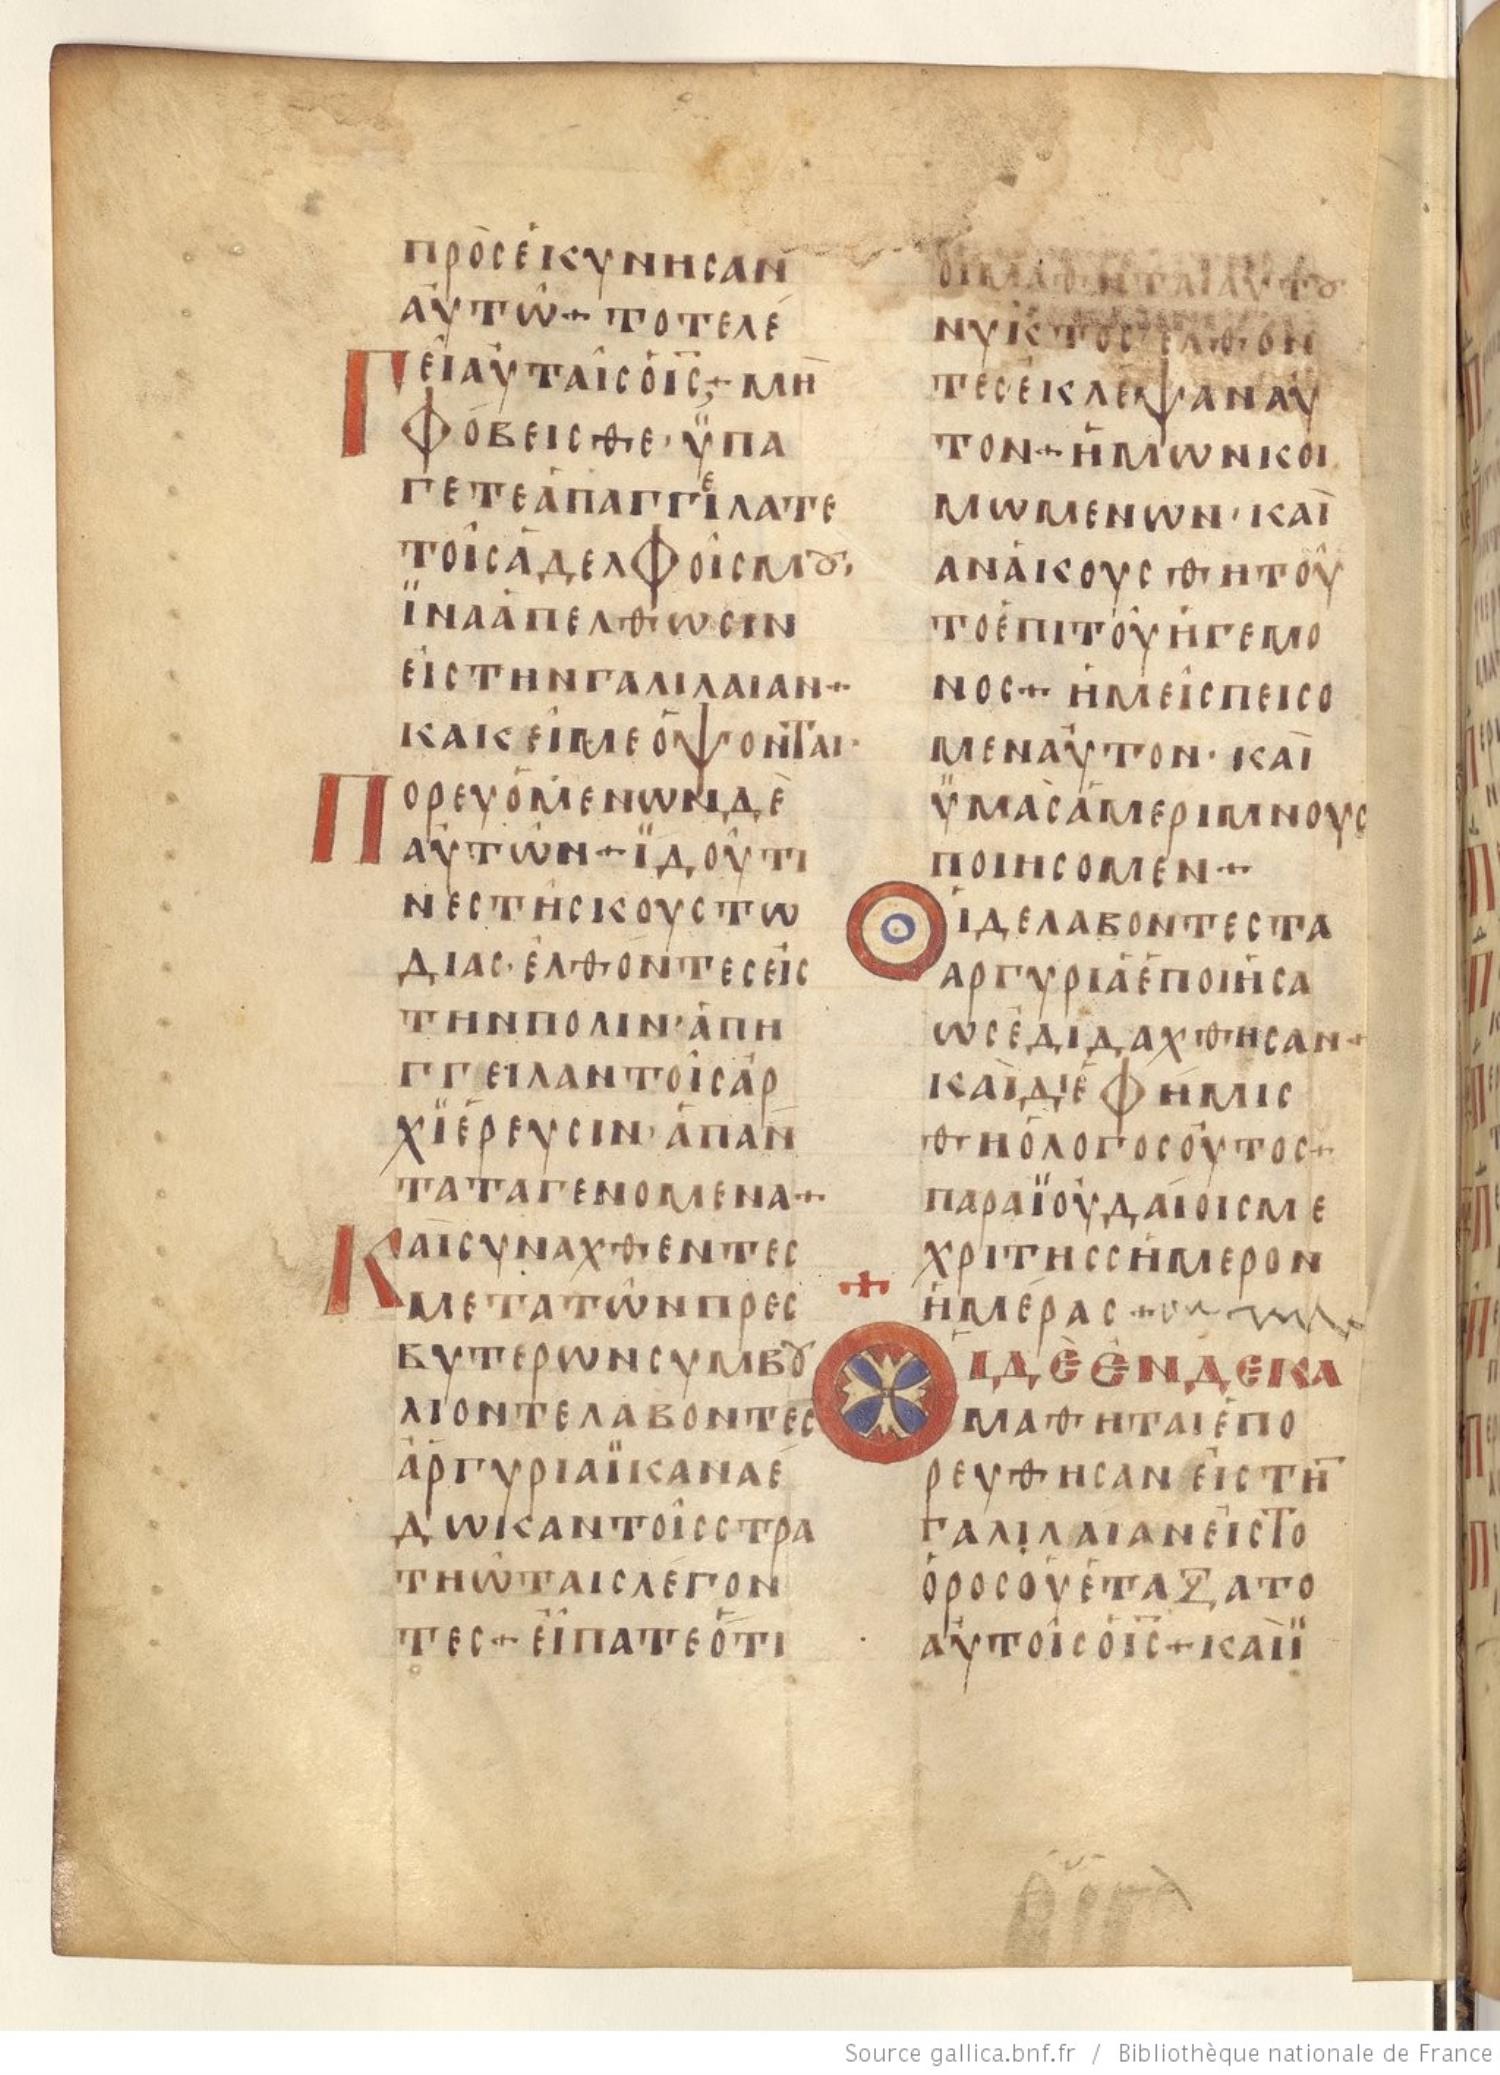 προσἐκυνησαν
αυτω + τοτε λέ
Γει αυταις ὁ ις + μη
φοβεισθε · ϋπα
γετε ἀπαγγεiλατε
τοῖς ἀδελφοῖς μȣ,
ϊνα ἀπελθωσιν
εἰς την γαλιλαιαν +
κακεῖ με ὄψονται ·
Πορευομενων δὲ
αυτῶν + ϊδου τι
νες τῆς κουστω
διας · ἐλθόντες εἰς
την πολιν · ἀπη
γγειλαν τοῖς ἀρ
χϊέρευσιν · ἀπαν
τα τα γενομενα +
Και συναχθεντες
μετα τῶν πρες
βυτερων συμβȣ
λιον τε λαβοντες
ἀργυρια ϊκανα ἐ
δωκαν τοῖς στρα
τηώταις λέγον
τες + εἴπατε ὅτι
οι μαθηται αυτȣ
νυκτος ελθον
τες εκλεψαν αυ
τον + ἡμων κοι
μωμενων · και
αν ἀκουσθη τοῦ
το ἐπι του ἡγεμο
νος + ἡμεῖς πεισο
μεν αυτον · και
ϋμας ἀμεριμνους
ποιησομεν +
Οι δε λαβοντες τα
αργυρια ἐποιησα
ως ἐδιδαχθησαν +
και διεφημισ
θη ὁ λογος ουτος +
παρα ϊουδαίοις με
χρι της σημερον
ἡμέρας +
Οι δὲ ἑνδεκα
μαθηται ἐπο
ρευθησαν εἰς τη̅
γαλιλαιαν εἰς το
ὄρος οὗ ἐταξατο
αυτοῖς ὁ ις + και ϊ
Source gallica.bnf.fr / Bibliothèque nationale de France